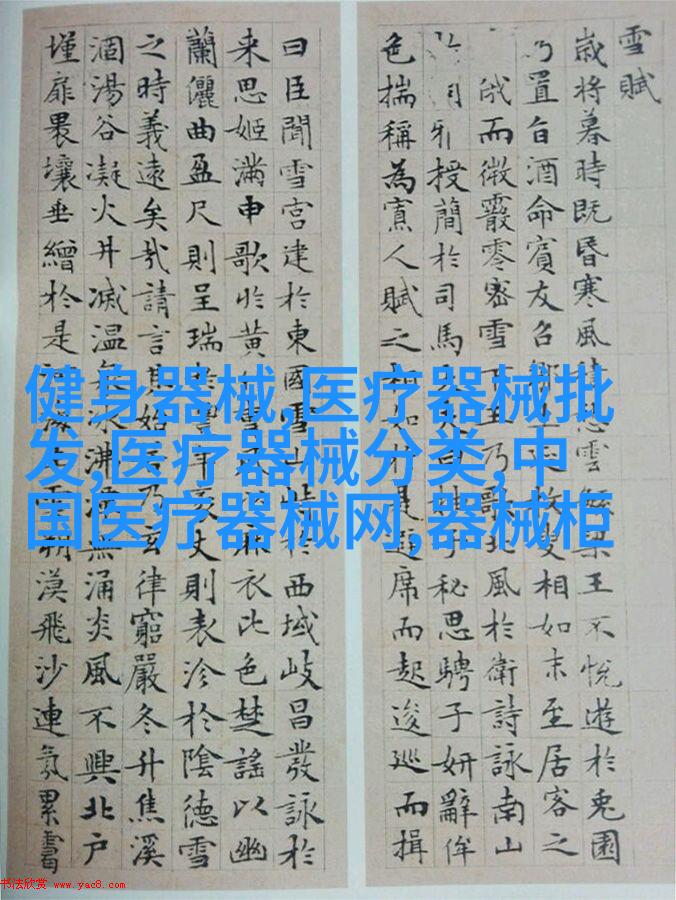 雪賦
歲將暮時既昏寒風雲繁梁王不悅遊於兔園
乃置旨酒命賓友召鄒生延枚叟相如末至居客之
俄而微霰零密雪下王乃歌北風於衛詩詠南山
雅授簡於司馬大夫曰抽子秘思騁子妍辭侔
色揣稱為寡人賦之相如於是避席而起逡巡而揖
曰臣聞雪宮建於東國雪山峙於西域岐昌發詠於
来思姬滿申歌於黃竹曹風以麻衣比色楚謠以幽
蘭儷曲盈尺則呈瑞於豐年袤丈則表沴於陰德雪
之時義遠矣哉請言其始若乃玄律窮嚴冬升焦溪
涸湯谷凝火井滅温泉冰沸潭無涌炎風不興北户
墐扉裸壤垂繒於是河海生雲朔漠飛沙連氛累靄
健身器械,医疗器械批
发,医疗器械分类,中
国医疗器械网,器械柜
书法欣赏 www.yac8.com